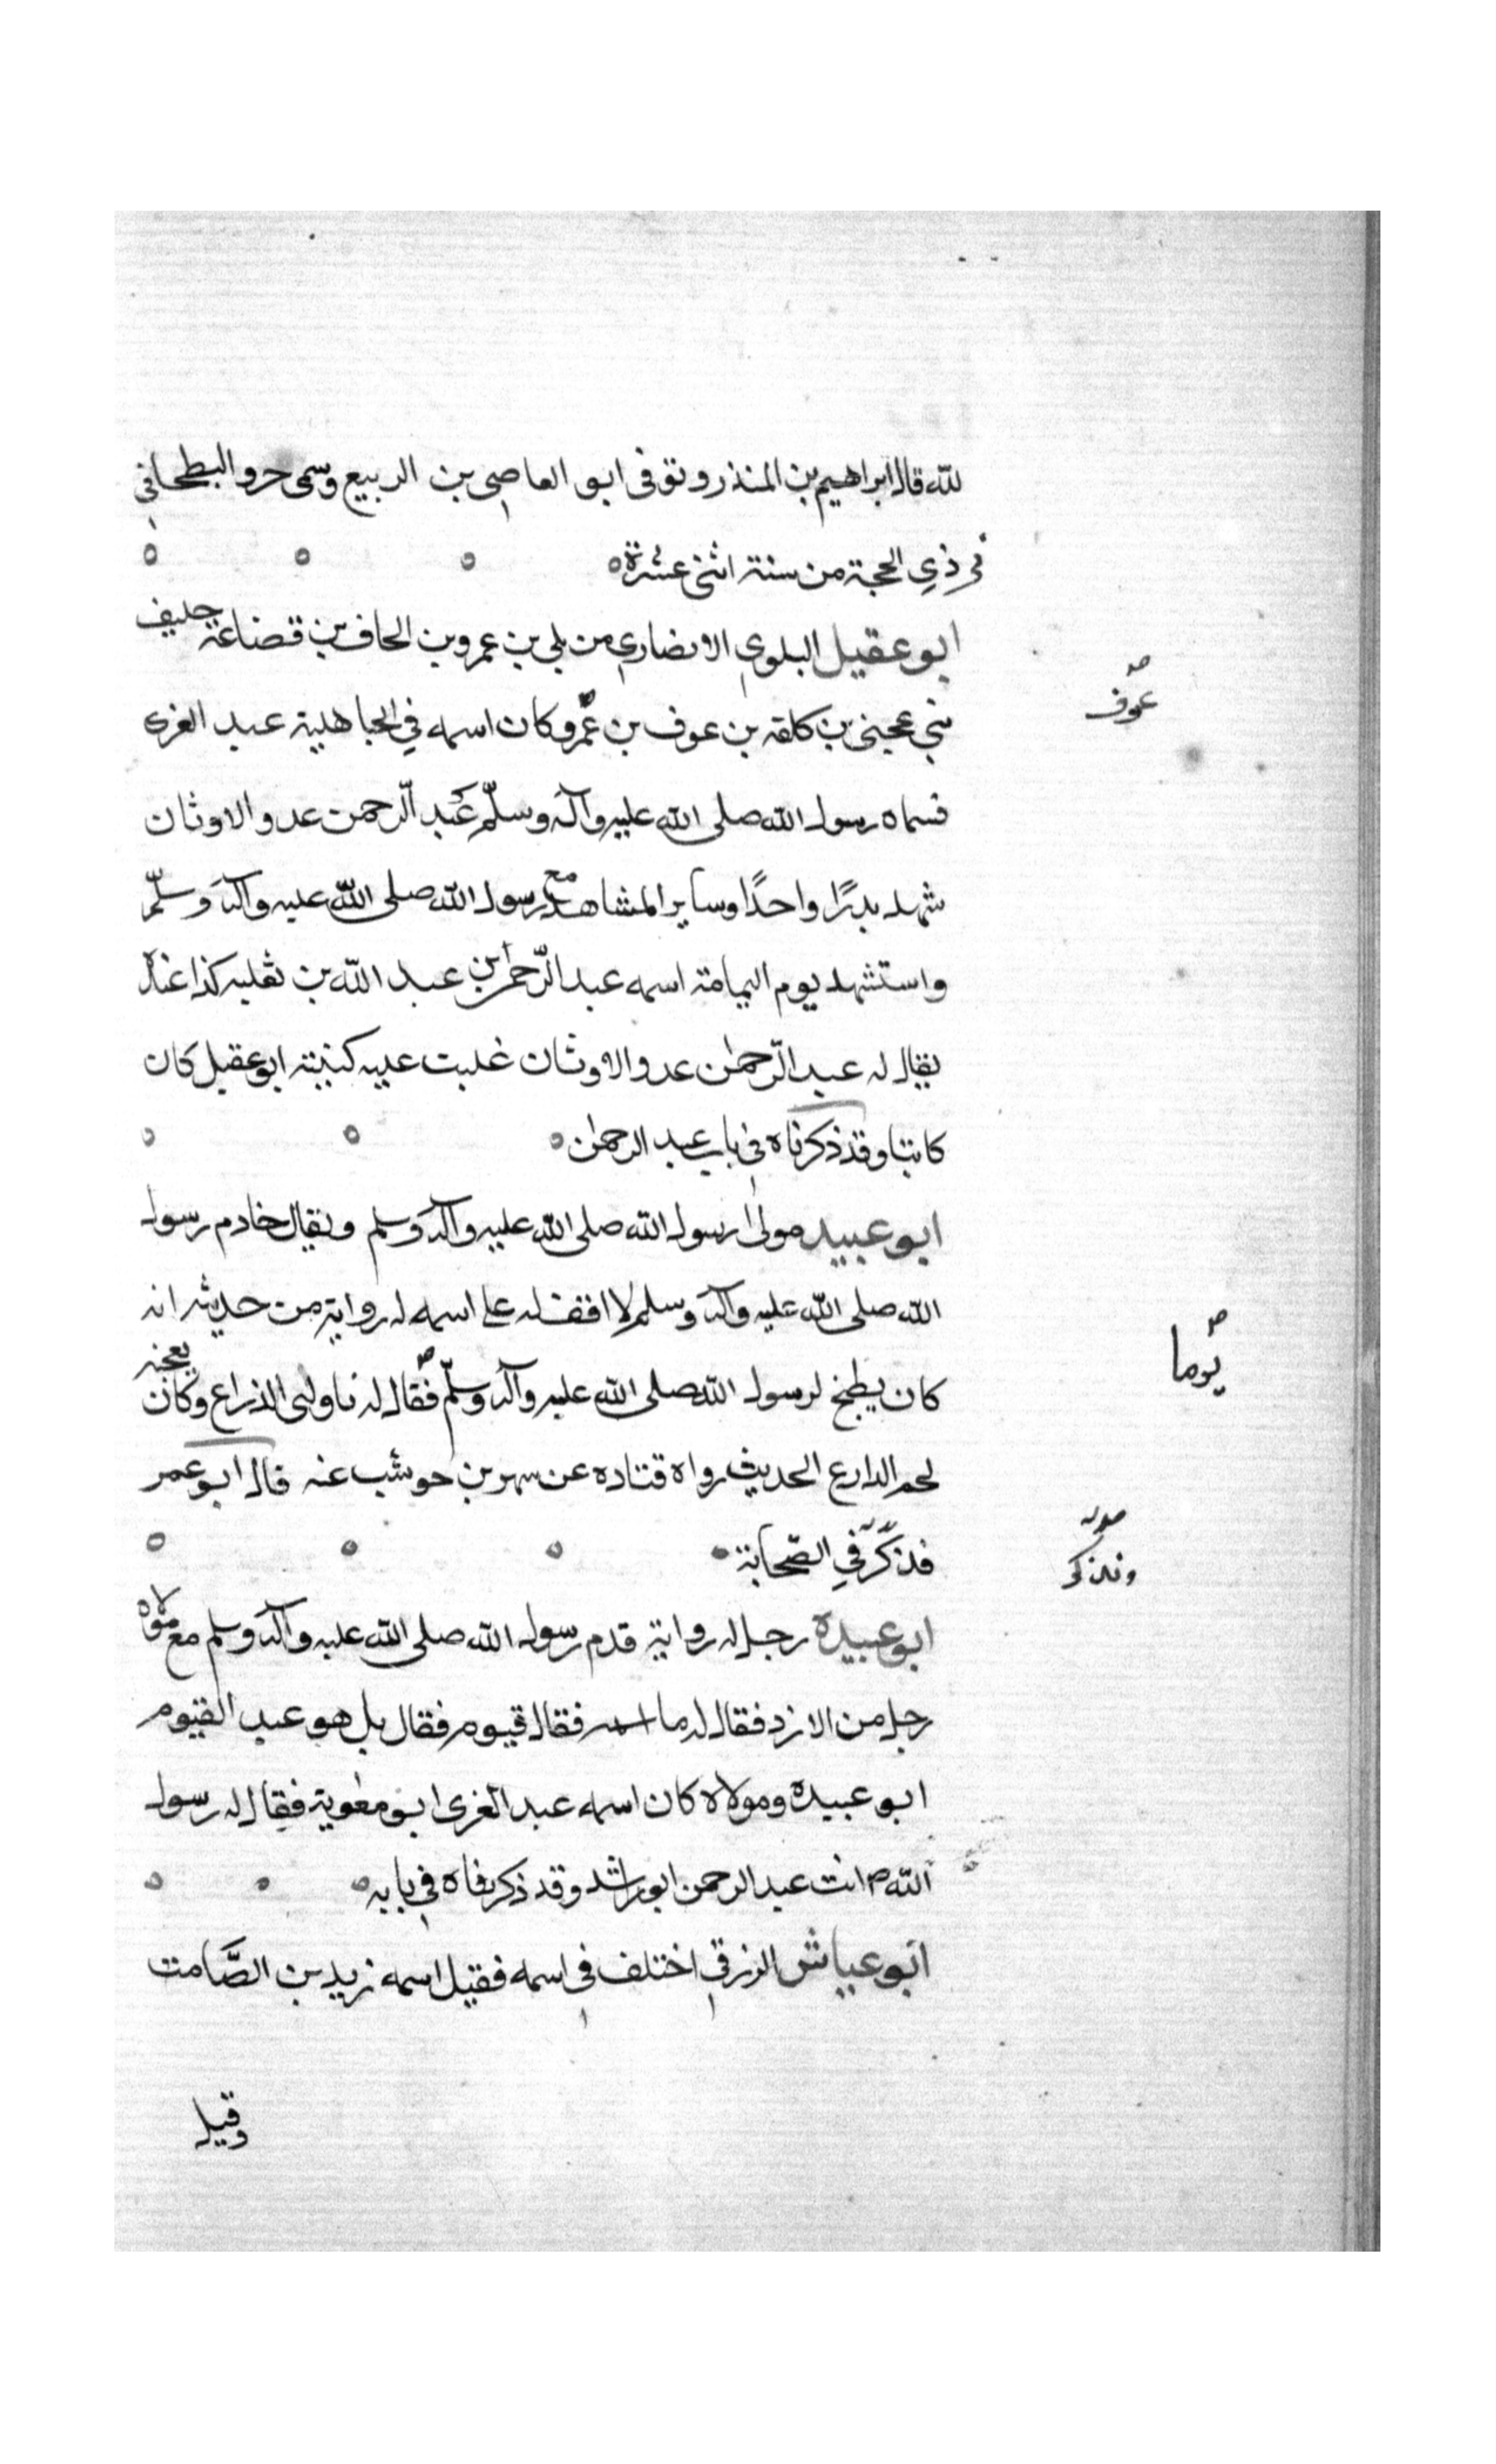 لله قال ابراهيم بن المنذر وتوفى ابو العاصى بن الربيع وسمى جرو البطحا فى
فى ذي الحجة من سنة اثنى عشرة
ابو عقيل البلوي الانصاري من بلى بن عمرو بن الحاف بن قضاعة حليف
بني عجبنى بن كلفه بن عوف بن عمرو وكان اسمه في الجاهلية عبد العزى
عوف
فسماه رسول الله صلى الله عليه وآله وسلّم عبد الرّحمن عدو الاوثان
شهد بدرًا واحدًا وساير المشاهد مع رسول الله صلى الله عليه وآله وسلّم
واستشهد يوم اليمامة اسمه عبد الرّحمن بن عبد الله بن ثعلبه كذا عنه
يقال له عبد الرّحمن عدو الاوثان غلبت عليه كنيته ابو عقيل كان
كاتبا وقد ذكرناه فى باب عبد الرحمن
ابو عبيد مولى رسول الله صلى الله عليه وآله وسلم ويقال خادم رسول
الله صلى الله عليه وآله وسلم لا اقف له على اسمه له رواية من حديثه انه
كان يطبخ لرسول الله صلى الله عليه وآله وسلّم فقال له ناولنى الذراع وكان يعجبه
يوما
لحم الدارع الحديث رواه قتاده عن شهر بن حوشب عنه قال ابو عمر
فذكر في الصّحابة
ويذكر
ابو عبيدة رجل له رواية قدم رسول الله صلى الله عليه وآله وسلم مع مولاه
رجل من الازد فقال له ما اسمه فقال قيوم فقال بل هو عبد القيوم
ابو عبيدة ومولاه كان اسمه عبد العزى ابو مغوية فقال له رسول
الله ص انت عبد الرحمن ابو راشد وقد ذكرناه فى بابه
ابو عياش الزرقى اختلف فى اسمه فقيل اسمه زيد بن الصّامت
وقيل